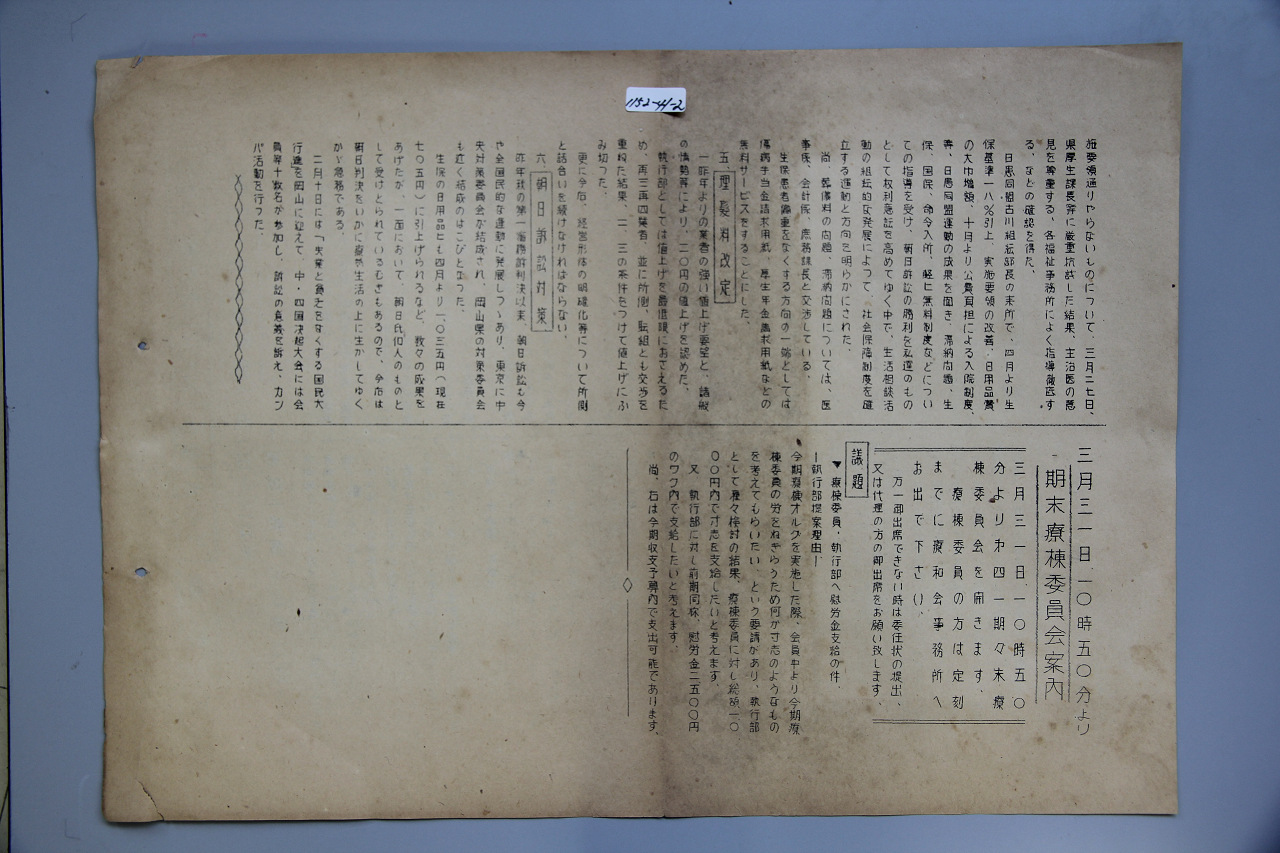 1152-41-2
施要領通りやらないものについて、三月二七日、
県厚生課長等に厳重抗議した結果、主治医の意
見を尊重する、各福祉事務所によく指導徹底す
る、などの確認を得た。
日患同盟古川組織部長の来所で、四月より生
保基準一八%引上、実施要領の改善、日用品費
の大巾増額、十月より公費負担による入院制度、
等、日患同盟運動の成果を聞き、滞納問題、生
保、国保、命令入所、軽ヒ無料制度などについ
ての指導を受け、朝日訴訟の勝利を私達のもの
として権利意識を高めてゆく中で、生活相談活
動の組織的な発展によって、社会保障制度を確
立する運動と方向を明らかにされた。
尚、郵便料の問題、滞納問題については、医
事係、会計係、庶務課長と交渉している。
生保患者偏重をなくする方向の一端としては
傷病手当金請求用紙、厚生年金請求用紙などの
無料サービスをすることにした。
五、理髪料改定
一昨年よりの業者の強い値上げ要望と、諸般
の情勢等により、二〇円の値上げを認めた。
執行部としては値上げを最低限におさえるた
め、再三再四業者、並に所側、転組とも交渉を
重ねた結果、二、三の条件をつけて値上げにふ
み切った。
更に今后、経営形体の明確化等について所側
と話合いを続けなければならない。
六、朝日訴訟対策
昨年秋の第一審勝訴判決以来、朝日訴訟も今
や全国民的な運動に発展しつゝあり、東京に中
央対策委員会が結成され、岡山県の対策委員会
も近く結成のはこびとなった。
生保の日用品ヒも四月より一、〇三五円（現在
七〇五円）に引上げられるなど、我々の成果を
あげたが、一面において、朝日氏個人のものと
して受けとられているむきもあるので、今后は
朝日判決をいかに療養生活の上に生かしてゆく
かゞ急務である。
二月十日には「失業と貧乏をなくする国民大
行進」を岡山に迎えて、中・四国決起大会には会
員等十数名が参加し、訴訟の意義を訴え、カン
パ活動を行った。
三月三一日、一〇時五〇分より
期末療棟委員会案内
三月三一日、一〇時五〇
分より才四一期々末療
棟委員会を開きます、
療棟委員の方は定刻
までに療和会事務所へ
お出で下さい、
万一御出席できない時は委任状の提出、
又は代理の方の御出席をお願い致します、
議題
▼療棟委員、執行部へ慰労金支給の件、
ー執行部提案理由ー
今期療棟オルグを実施した際、会員中より今期療
棟委員の労をねぎらうため何か寸志のようなもの
を考えてもらいたい、という要請があり、執行部
として種々検討の結果、療棟委員に対し総額一〇
〇〇円内で寸志を支給したいと考えます。
又、執行部に対し前期同様、慰労金二五〇〇円
のワク内で支給したいと考えます。
尚、右は今期収支予算内で支出可能であります、